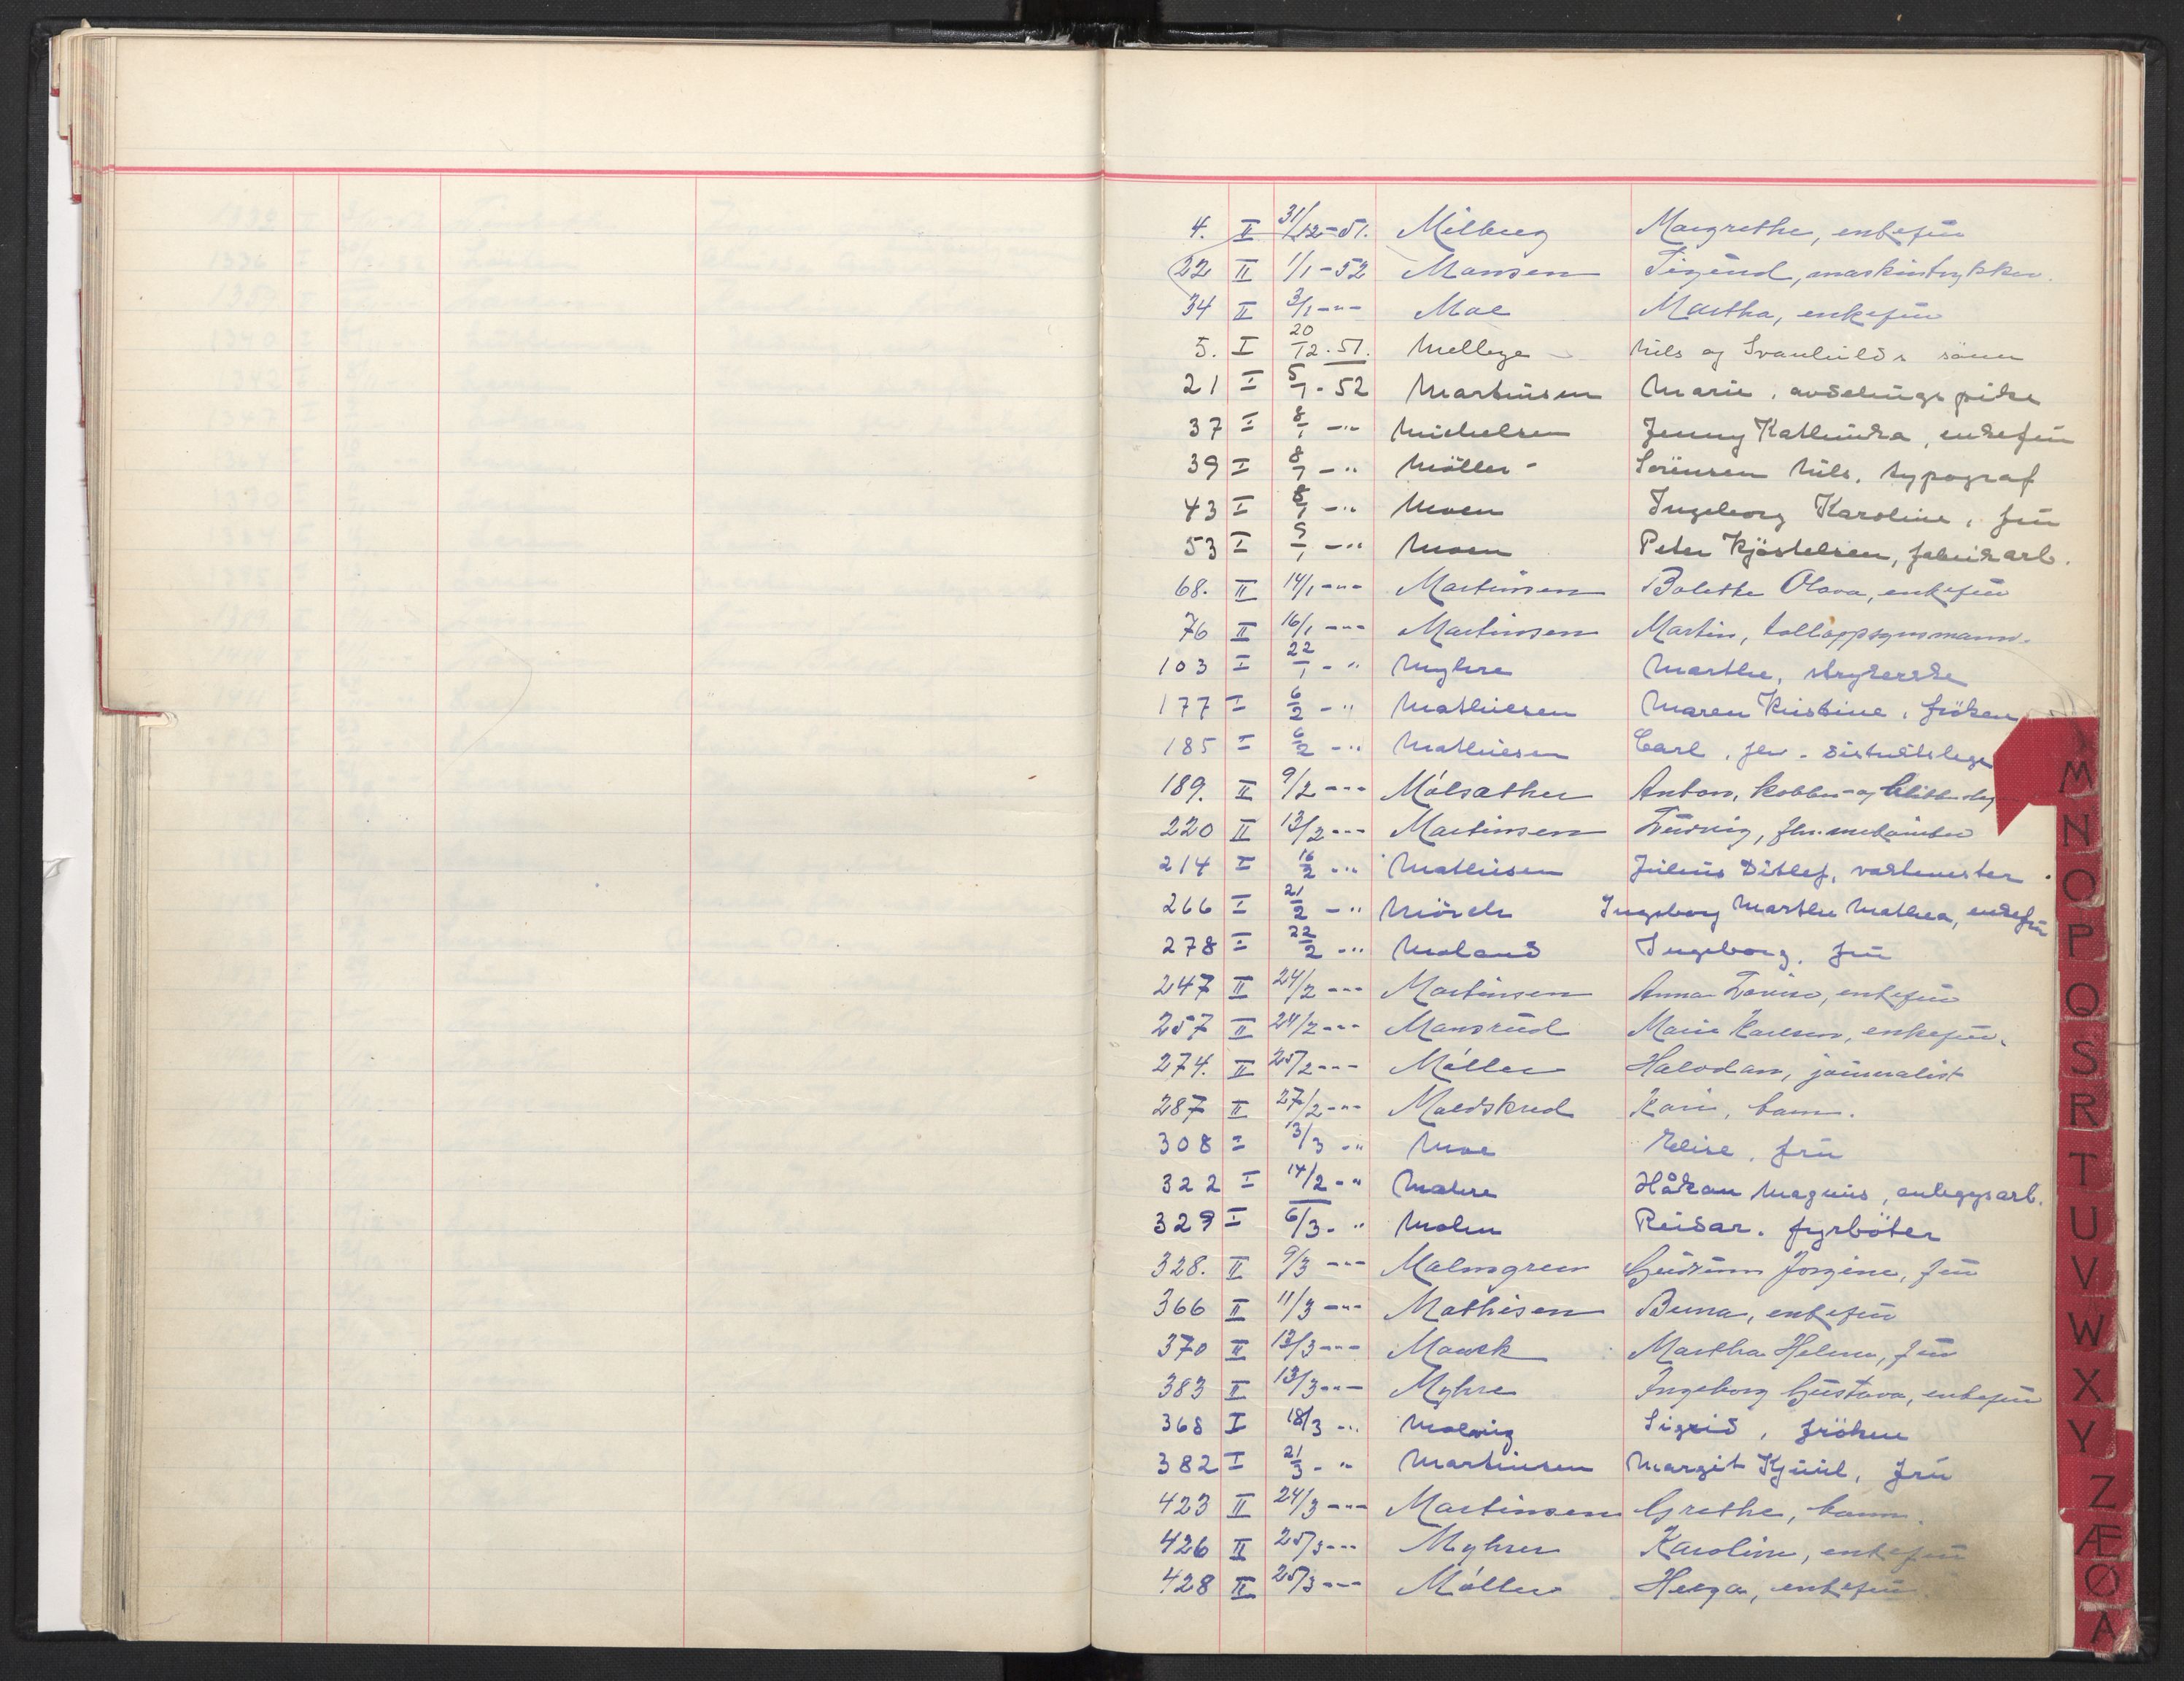 4. II 31/12-51. Milberg Margrethe, enkefru
22 II 1/1-52 Monsen Sigurd, maskintrykker.
34 II 3/1 -"- Moe Martha, enkefru
5. I 20/12.51. Mellbye Nils og Svanhilds sönn
21 I 5/1-52 Martinsen Marie, avdelingspike
37 I 8/1 -"- Michelsen Jenny Kathinka, enkefru
39 I 8/1 -" Möller - Sörensen Nils, typograf
43 I 8/1 -" Moen Ingeborg Karoline, fru
53 I 9/1 -" Moen Peter Kjöstelsen, fabrikarb.
68. II 14/1 -"- Martinsen Bolette Olava, enkefru
76 II 16/1 -"- Martinsen Martin, tolloppsynsmann.
103 I 22/1 -" Myhre Marthe, strykerske
177 I 6/2 -" Mathiesen Maren Kristine, fröken
185 I 6/2 -" Mathiesen Carl, fhv. distriktslege
189. II 9/2 -"- Mólsæther Anton, kobber- og
220 II 13/2 -"- Martinsen Ludvig, fhv.
214 I 16/2 -" Mathisen Julius Ditlef, vaktmester.
266 I 21/2 -" Mörch Ingeborg Marthe Mathea, enkefru
278 I 22/2 -" Moland Ingeborg, fru
247 II 24/2 -"- Martinsen Anna Lovise, enkefru
257 II 24/2 -"- Mansrud Marie Karlson, enkefru.
274. II 25/2 -"- Möller Halvdan, journalist
287 II 27/2 -"- Kari, barn.
308 I 3/3 -" Moe Elise, fru
322 I 14/2 -" Håkan Magnus, anleggsarb.
329 I 6/3. " Molin Reidar, fyrböter
328. II 9/3 -"- Malmgreen Gudrunn Jorgine, fru
366 II 11/3 -"- Mathisen Berna, enkefru
370 II 13/3 -"- Munck Martha Helene, fru
383 II 13/3 -"- Myhre Ingeborg Gustava, enkefru
368 I 18/3 -" Molvig Sigrid, fröken
382 I 21/3 - " Martinsen Margit Kjuul, fru
423 II 24/3 -"- Martinsen Grethe, barn.
426 II 25/3 -"- Myhrer Karoline, enkefru
428 II 25/3 -"- Möller Helga, enkefru
M
N
O
P
Q
S
R
T
U
V
W
X
Y
Z
Æ
Ø
A